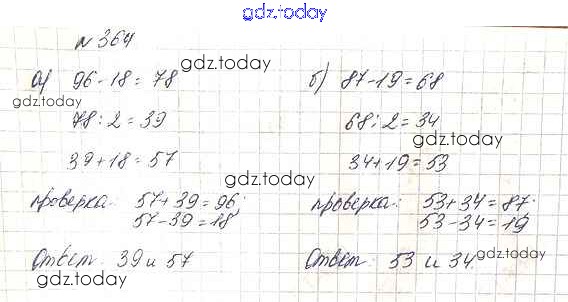 gdz.today
№ 364
а) 96-18=78
gdz.today
gdz.today
78:2=39
39+18=57
gdz.today
проверка: 57+39=96;
57-39=18
Ответ: 39 и 57
gdz.today
б) 87-19=68
68:2=34
gdz.today
34+19=53
проверка: 53+34=87;
53-34=19
Ответ: 53 и 34.
gdz.today